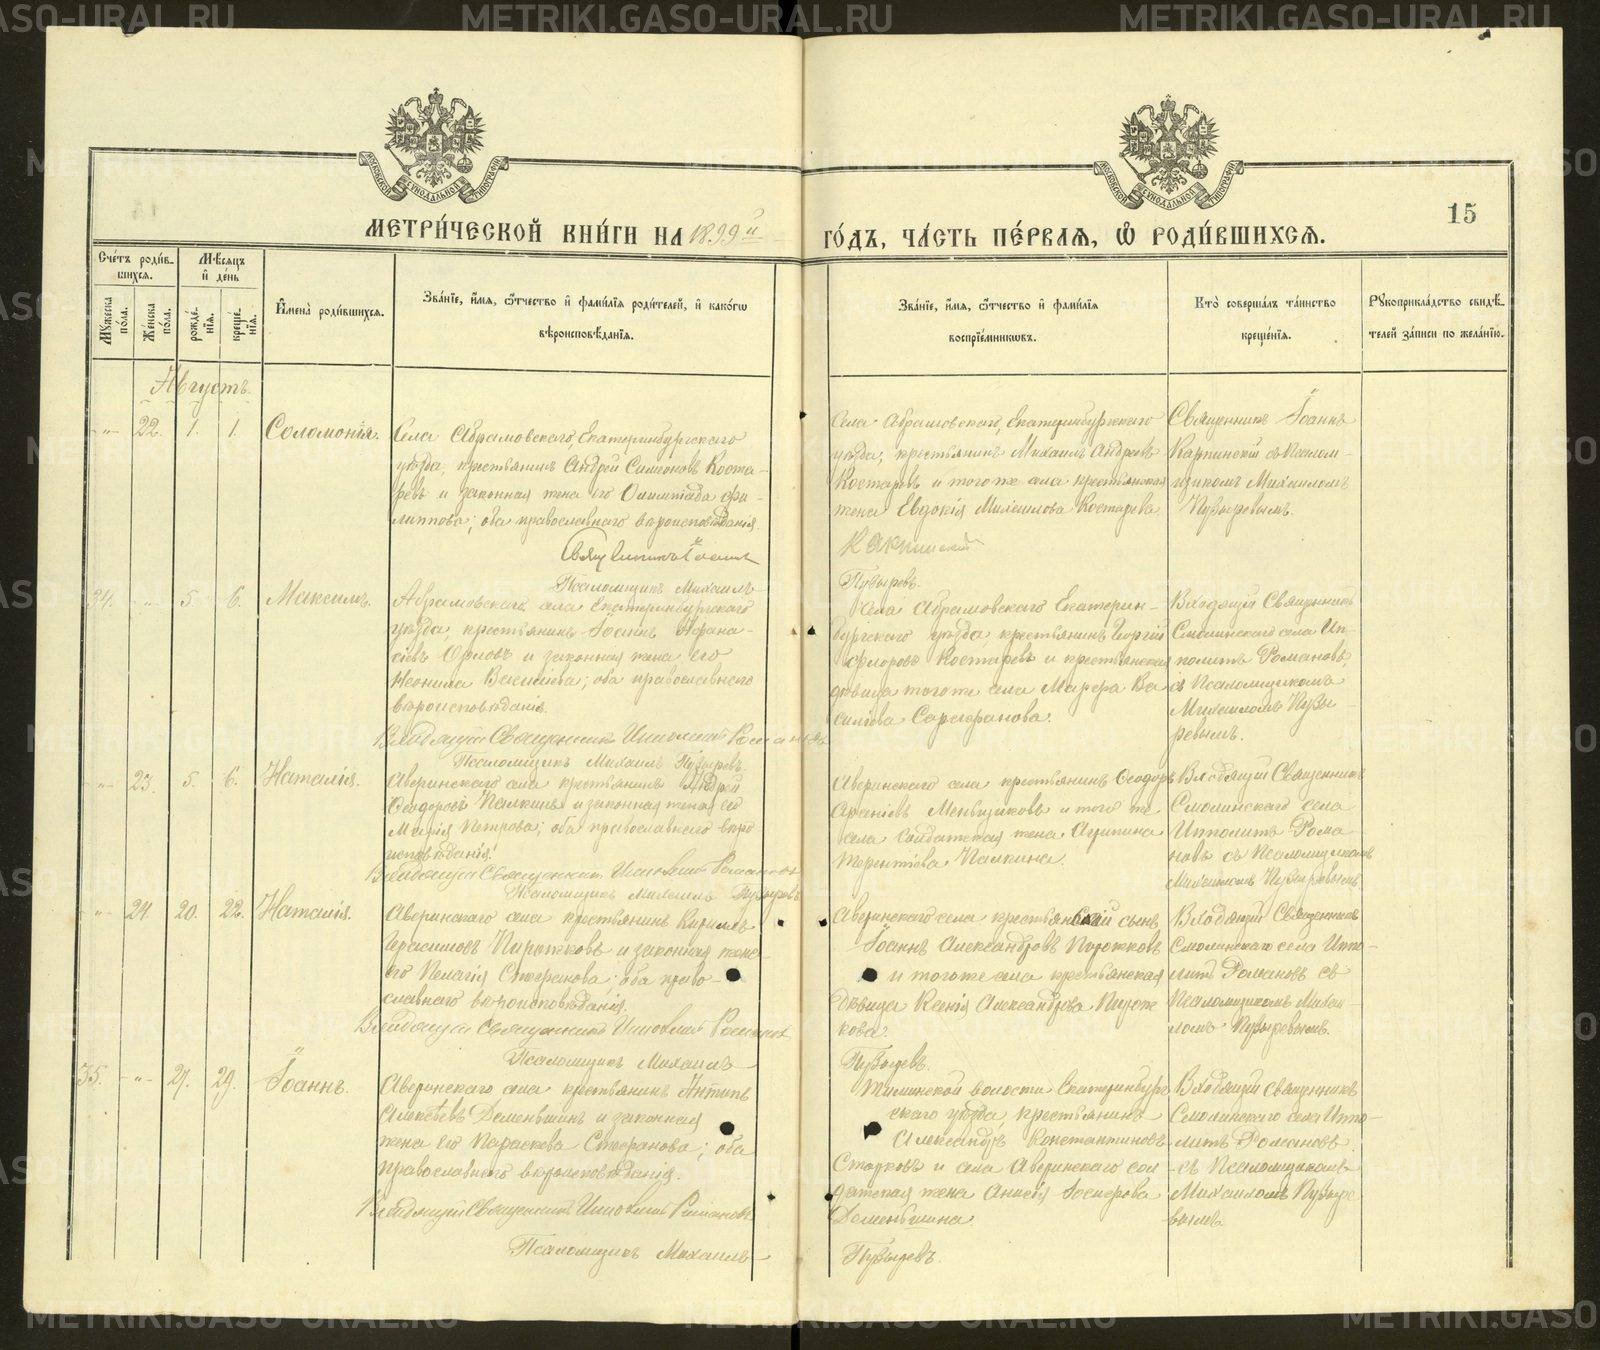 METRIKI.GASO-URAL.RU
МОСКОВСКОЙ СѴНОДАЛЬНОЙ ТИПОГРАФІИ
МОСКОВСКОЙ СѴНОДАЛЬНОЙ ТИПОГРАФІИ
15
МЕТРИ́ЧЕСКОЙ КНИ́ГИ НА 1899й ГО́ДЪ, ЧА́СТЬ ПЕ́РВАѦ, Ѡ҆ РОДИ́ВШИХСѦ.
Сче́тъ роди́вшихсѧ.
Мꙋжеска пола.
Же́нска пола.
Мѣ́сѧцъ и҆ де́нь
рожде́нїѧ.
креще́нїѧ.
И҆мена̀ роди́вшихсѧ.
Зва́нїе, и҆́мѧ, ѻ҆́тчество и҆ фами́лїѧ роди́телей, и҆ како́гѡ
вѣроисповѣ́данїѧ.
Зва́нїе, и҆́мѧ, ѻ҆́тчество и҆ фами́лїѧ
воспрїе́мникѡвъ.
Кто̀ соверша́лъ та́инство
креще́нїѧ.
Рꙋкоприкла́дство свидѣ́телей за́писи по жела́нїю.
Августъ.
-"- 22. 1. 1. Соломонія.
Села Абрамовскаго, Екатеринбургскаго
уѣзда, крестьянинъ Андрей Симеоновъ Коста-
ревъ и законная жена его Олимпіада Фи-
липпова; оба православнаго вѣроисповѣданія.
Священникъ Іоаннъ
Псаломщикъ Михаилъ
Села Абрамовскаго, Екатеринбургскаго
уѣзда, крестьянинъ Михаилъ Андреевъ
Костаревъ и того же села крестьянская
жена Евдокія Михаилова Костарева.
Карпинскій
Пузыревъ.
Священникъ Іоаннъ
Карпинскій съ псалом-
щикомъ Михаиломъ
Пузыревымъ.
34. -"- 5. 6. Максимъ.
Абрамовскаго села Екатеринбургскаго
уѣзда, крестьянинъ Іоаннъ Афана-
сіевъ Орловъ и законная жена его
Неонила Васильева; оба православнаго
вѣроисповѣданія.
Входящій Священникъ Ипполитъ Романовъ
Псаломщикъ Михаилъ Пузыревъ.
Села Абрамовскаго Екатерин-
бургскаго уѣзда, крестьянинъ Георгій
Флоровъ Костаревъ и крестьянская
дѣвица того же села Марфа Ва
силіева Сарафанова.
Входящій Священникъ
Смолинскаго села Ип-
политъ Романовъ,
съ Псаломщикомъ
Михаиломъ Пузы-
ревымъ.
-"- 23. 5. 6. Наталія.
Аверинскаго села крестьянинъ Андрей
Ѳеодоровъ Палкинъ и законная жена его
Марія Петрова; оба православнаго вѣро
исповѣданія.
Входящій Священникъ Ипполитъ Романовъ
Псаломщикъ Михаилъ Пузыревъ
Аверинскаго села крестьянинъ Ѳеодоръ
Арсеніевъ Меньщиковъ и того же
села солдатская жена Агрипина
Терентіева Палкина.
Входящій Священникъ
Смолинскаго села
Ипполитъ Рома
новъ съ Псаломщикомъ
Михаиломъ Пузыревымъ.
-"- 24. 20. 22. Наталія.
Аверинскаго села крестьянинъ Кириллъ
Герасимовъ Пирожковъ и законная жена
его Пелагія Стефанова; оба право-
славнаго вѣроисповѣданія.
Входящій Священникъ Ипполитъ Романовъ
Псаломщикъ Михаилъ
Аверинскаго села крестьянскій сынъ
Іоаннъ Александровъ Пирожковъ
и того же села крестьянская
дѣвица Ксенія Александрова Пирож
кова.
Пузыревъ.
Входящій Священникъ
Смолинскаго села Иппо-
литъ Романовъ съ
Псаломщикомъ Михаи-
ломъ Пузыревымъ.
35. -"- 27. 29. Іоаннъ.
Аверинскаго села крестьянинъ Антипъ
Алексѣевъ Деменьшинъ и законная
жена его Параскева Стефанова; оба
православнаго вѣроисповѣданія.
Входящій Священникъ Ипполитъ Романовъ
Псаломщикъ Михаилъ
волости Екатеринбург
скаго уѣзда, крестьянинъ
Александръ Константиновъ
Старковъ и села Аверинскаго сол
датская жена Анисія
Деменьшина.
Пузыревъ.
Входящій Священникъ
Смолинскаго села Иппо-
литъ Романовъ
съ Псаломщикомъ
Михаиломъ Пузыре
вымъ.